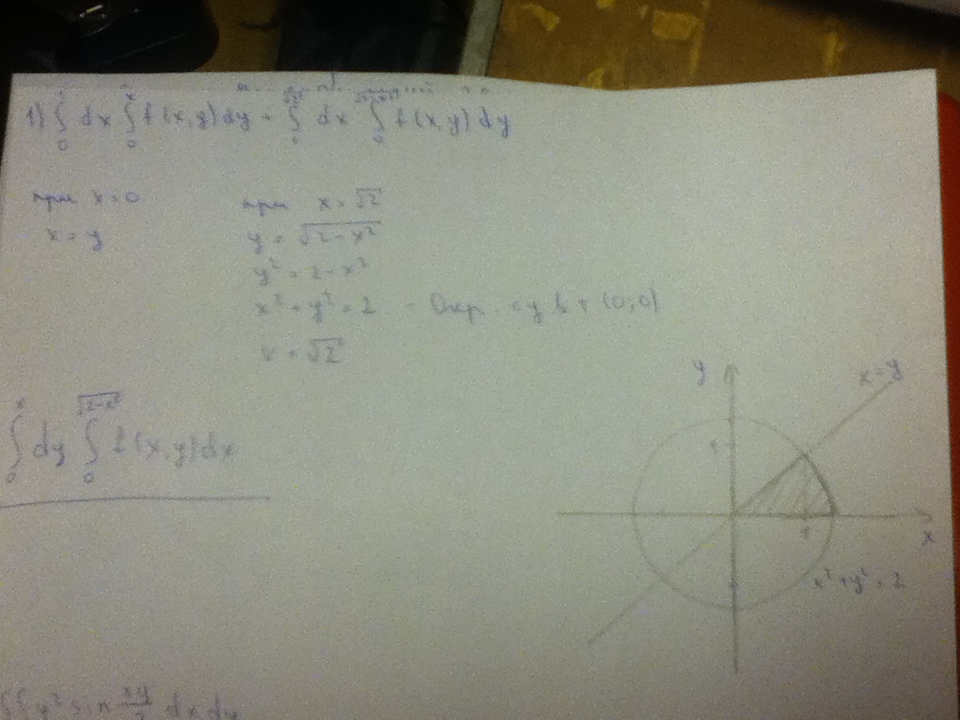 1) ∫₀¹ dx ∫₀ˣ f(x,y)dy + ∫₁^√2 dx ∫₀^√(2-x²) f(x,y)dy
при x=0
x=y
при x=√2
y=√(2-x²)
y²=2-x²
x²+y²=2 - Окр. с ц в т (0,0)
x=√2
∫₀ˣ dy ∫₀^√(2-x²) f(x,y)dx
y
x=y
1
1
x
x²+y²=2
∫∫ y² sin xy/2 dx dy